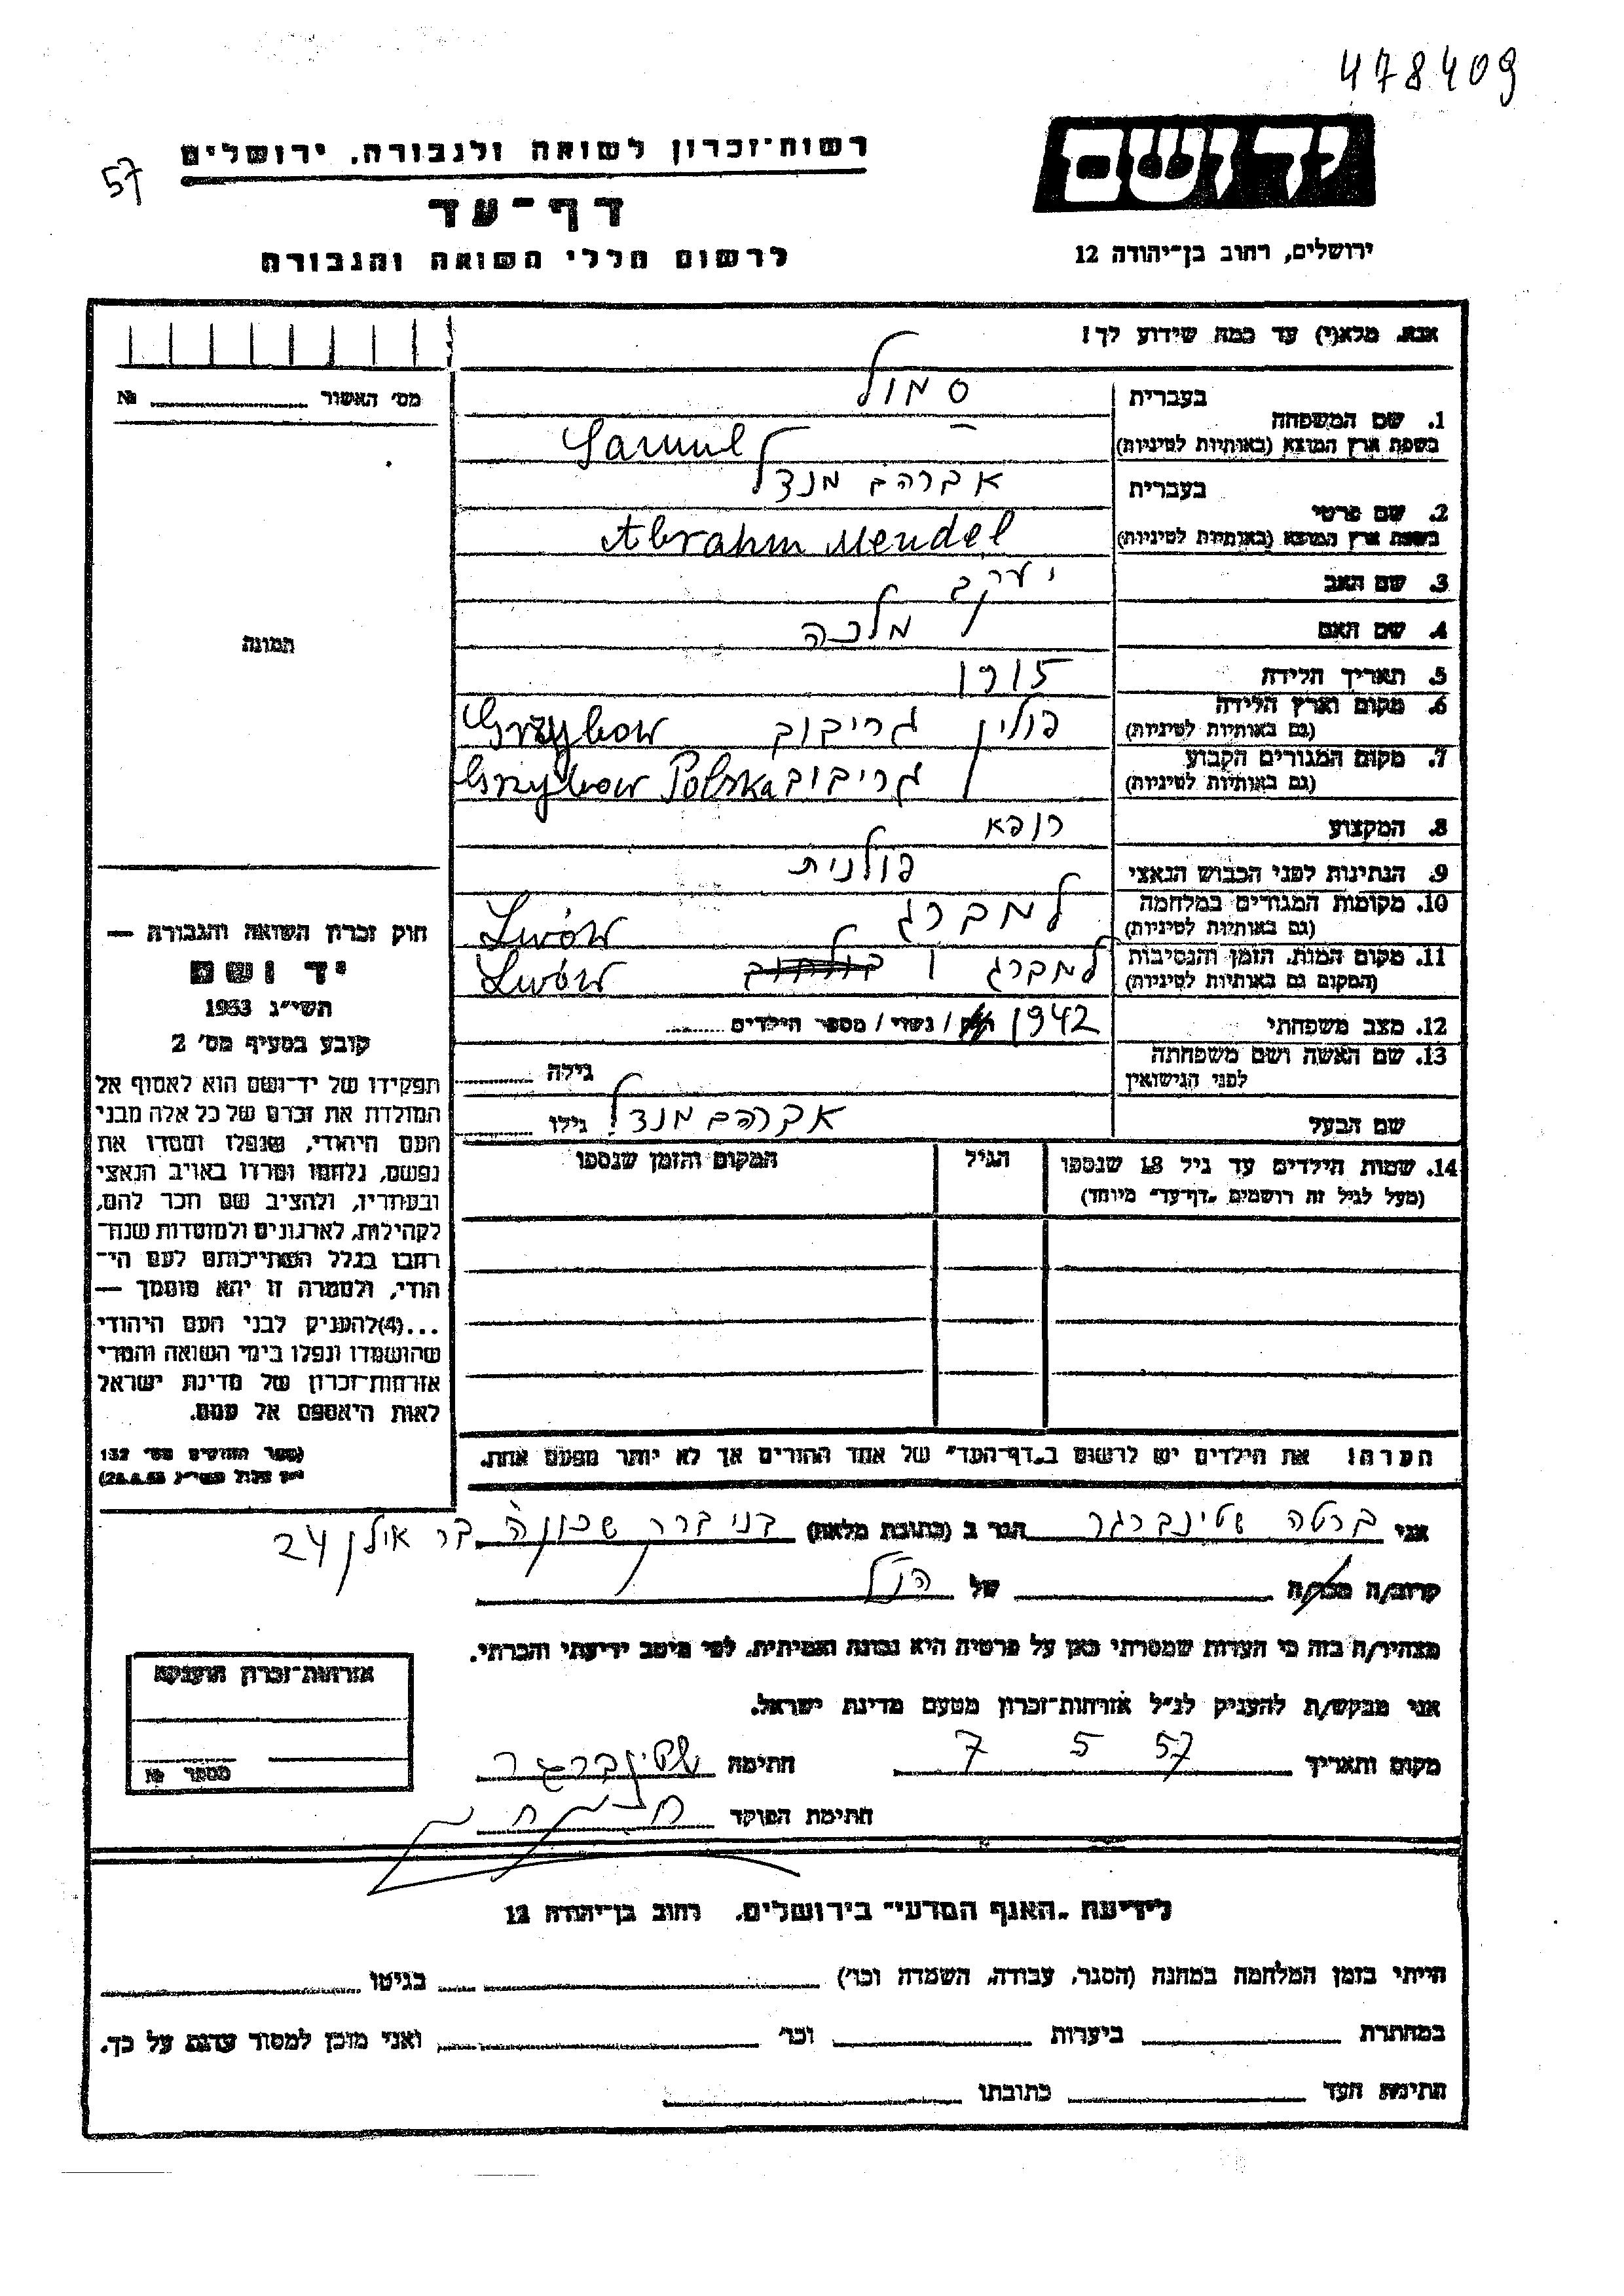 478409
57
רשות־זכרון לשואה ולגבורה, ירושלים
יד ושם
דף־עד
לרשום חללי השואה והגבורה
ירושלים, רחוב בן־יהודה 12
אנא, מלא(י) עד כמה שידוע לך!
מס' האשור №
1. שם המשפחה בעברית סמול
בשפת ארץ המוצא (באותיות לטיניות) Samul
2. שם פרטי בעברית אברהם מנדל
בשפת ארץ המוצא (באותיות לטיניות) Abrahm Mendel
3. שם האב יעקב
4. שם האם מלכה
5. תאריך הלידה
6. מקום וארץ הלידה (גם באותיות לטיניות) פולין גריבוב Grzybow
7. מקום המגורים הקבוע (גם באותיות לטיניות) גריבוב Grzybow Polska
8. המקצוע רופא
9. הנתינות לפני הכבוש הנאצי פולנית
10. מקומות המגורים במלחמה (גם באותיות לטיניות) למברג Lwów
11. מקום המות, הזמן והנסיבות (המקום גם באותיות לטיניות) למברג Lwów
12. מצב משפחתי 1942 / נשוי / מספר הילדים
13. שם האשה ושם משפחתה לפני הנישואין גילה
שם הבעל אברהם מנדל גילו
תמונה
חוק זכרון השואה והגבורה —
יד ושם
תשי"ג 1953
קובע בסעיף מס' 2
תפקידו של יד־ושם הוא לאסוף אל
המולדת את זכרם של כל אלה מבני
העם היהודי, שנפלו ומסרו את
נפשם, נלחמו ומרדו באויב הנאצי
ובעוזריו, ולהציב שם וזכר להם,
לקהילות, לארגונים ולמוסדות שנח־
רבו בגלל השתייכותם לעם הי־
הודי, ולמטרה זו יהא מוסמך —
...(4) להעניק לבני העם היהודי
שהושמדו ונפלו בימי השואה והמרי
אזרחות־זכרון של מדינת ישראל
לאות היאספם אל עמם.
(ספר החוקים מס' 132
י"ז אלול תשי"ג 28.8.53)
14. שמות הילדים עד גיל 18 שנספו הגיל המקום והזמן שנספו
(מעל לגיל זה רושמים „דף־עד" מיוחד)
הערה! את הילדים יש לרשום ב„דף־העד" של אחד ההורים אך לא יותר מפעם אחת.
אני ברטה שטינברגר הגר ב (כתובת מלאה) בני ברק שכונה בר אילן 24
קרוב/ה מכר/ה של הנ"ל
מצהיר/ה בזה כי העדות שמסרתי כאן על פרטיה היא נכונה ואמיתית, לפי מיטב ידיעתי והכרתי.
אני מבקש/ת להעניק לנ"ל אזרחות־זכרון מטעם מדינת ישראל.
מקום ותאריך 7 5 57 חתימה שטינברגר
חתימת הפוקד
אזרחות־זכרון הוענקה
מספר №
לידיעת „האגף המדעי" בירושלים, רחוב בן־יהודה 12
הייתי בזמן המלחמה במחנה (הסגר, עבודה, השמדה וכו') בגיטו
במחתרת ביערות וכו' ואני מוכן למסור עדות על כך.
חתימת העד כתובתו